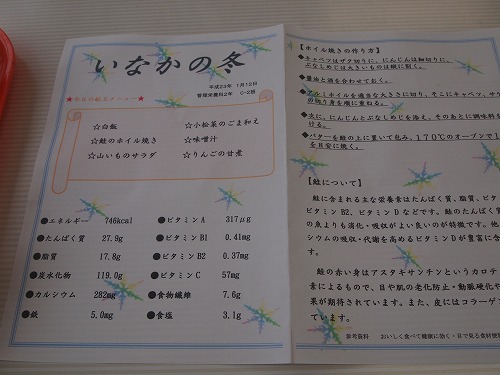 いなかの冬
平成23年 1月12日
管理栄養科2年 C-2班
★今日の献立メニュー★
☆白飯 ☆小松菜のごま和え
☆鮭のホイル焼き ☆味噌汁
☆山いものサラダ ☆りんごの甘煮
●エネルギー 746kcal ●ビタミンA 317μg
●たんぱく質 27.9g ●ビタミンB1 0.41mg
●脂質 17.8g ●ビタミンB2 0.37mg
●炭水化物 119.0g ●ビタミンC 57mg
●カルシウム 282mg ●食物繊維 7.6g
●鉄 5.0mg ●食塩 3.1g
【ホイル焼きの作り方】
◆キャベツはザク切りに、にんじんは細切りに、
ぶなしめじは大きいものは縦に割く。
◆醤油と酒を合わせておく。
◆アルミホイルを適当な大きさに切り、そこにキャベツ、
の切り身を順に重ねる。
◆次に、にんじんとぶなしめじを添え、そのあとに調味料を
ける。
◆バターを鮭の上に置いて包み、170℃のオーブンで1
を目安に焼く。
【鮭について】
鮭に含まれる主な栄養素はたんぱく質、脂質、ビタ
ビタミンB2、ビタミンDなどです。鮭のたんぱく質
の魚よりも消化・吸収がよい良いのが特徴です。他
シウムの吸収・代謝を高めるビタミンDが豊富に含
す。
鮭の赤い身はアスタキサンチンというカロテ
素によるもので、目や肌の老化防止・動脈硬化や
果が期待されています。また、皮にはコラーゲ
ています。
参考資料 おいしく食べて健康に効く・目で見る食材便利